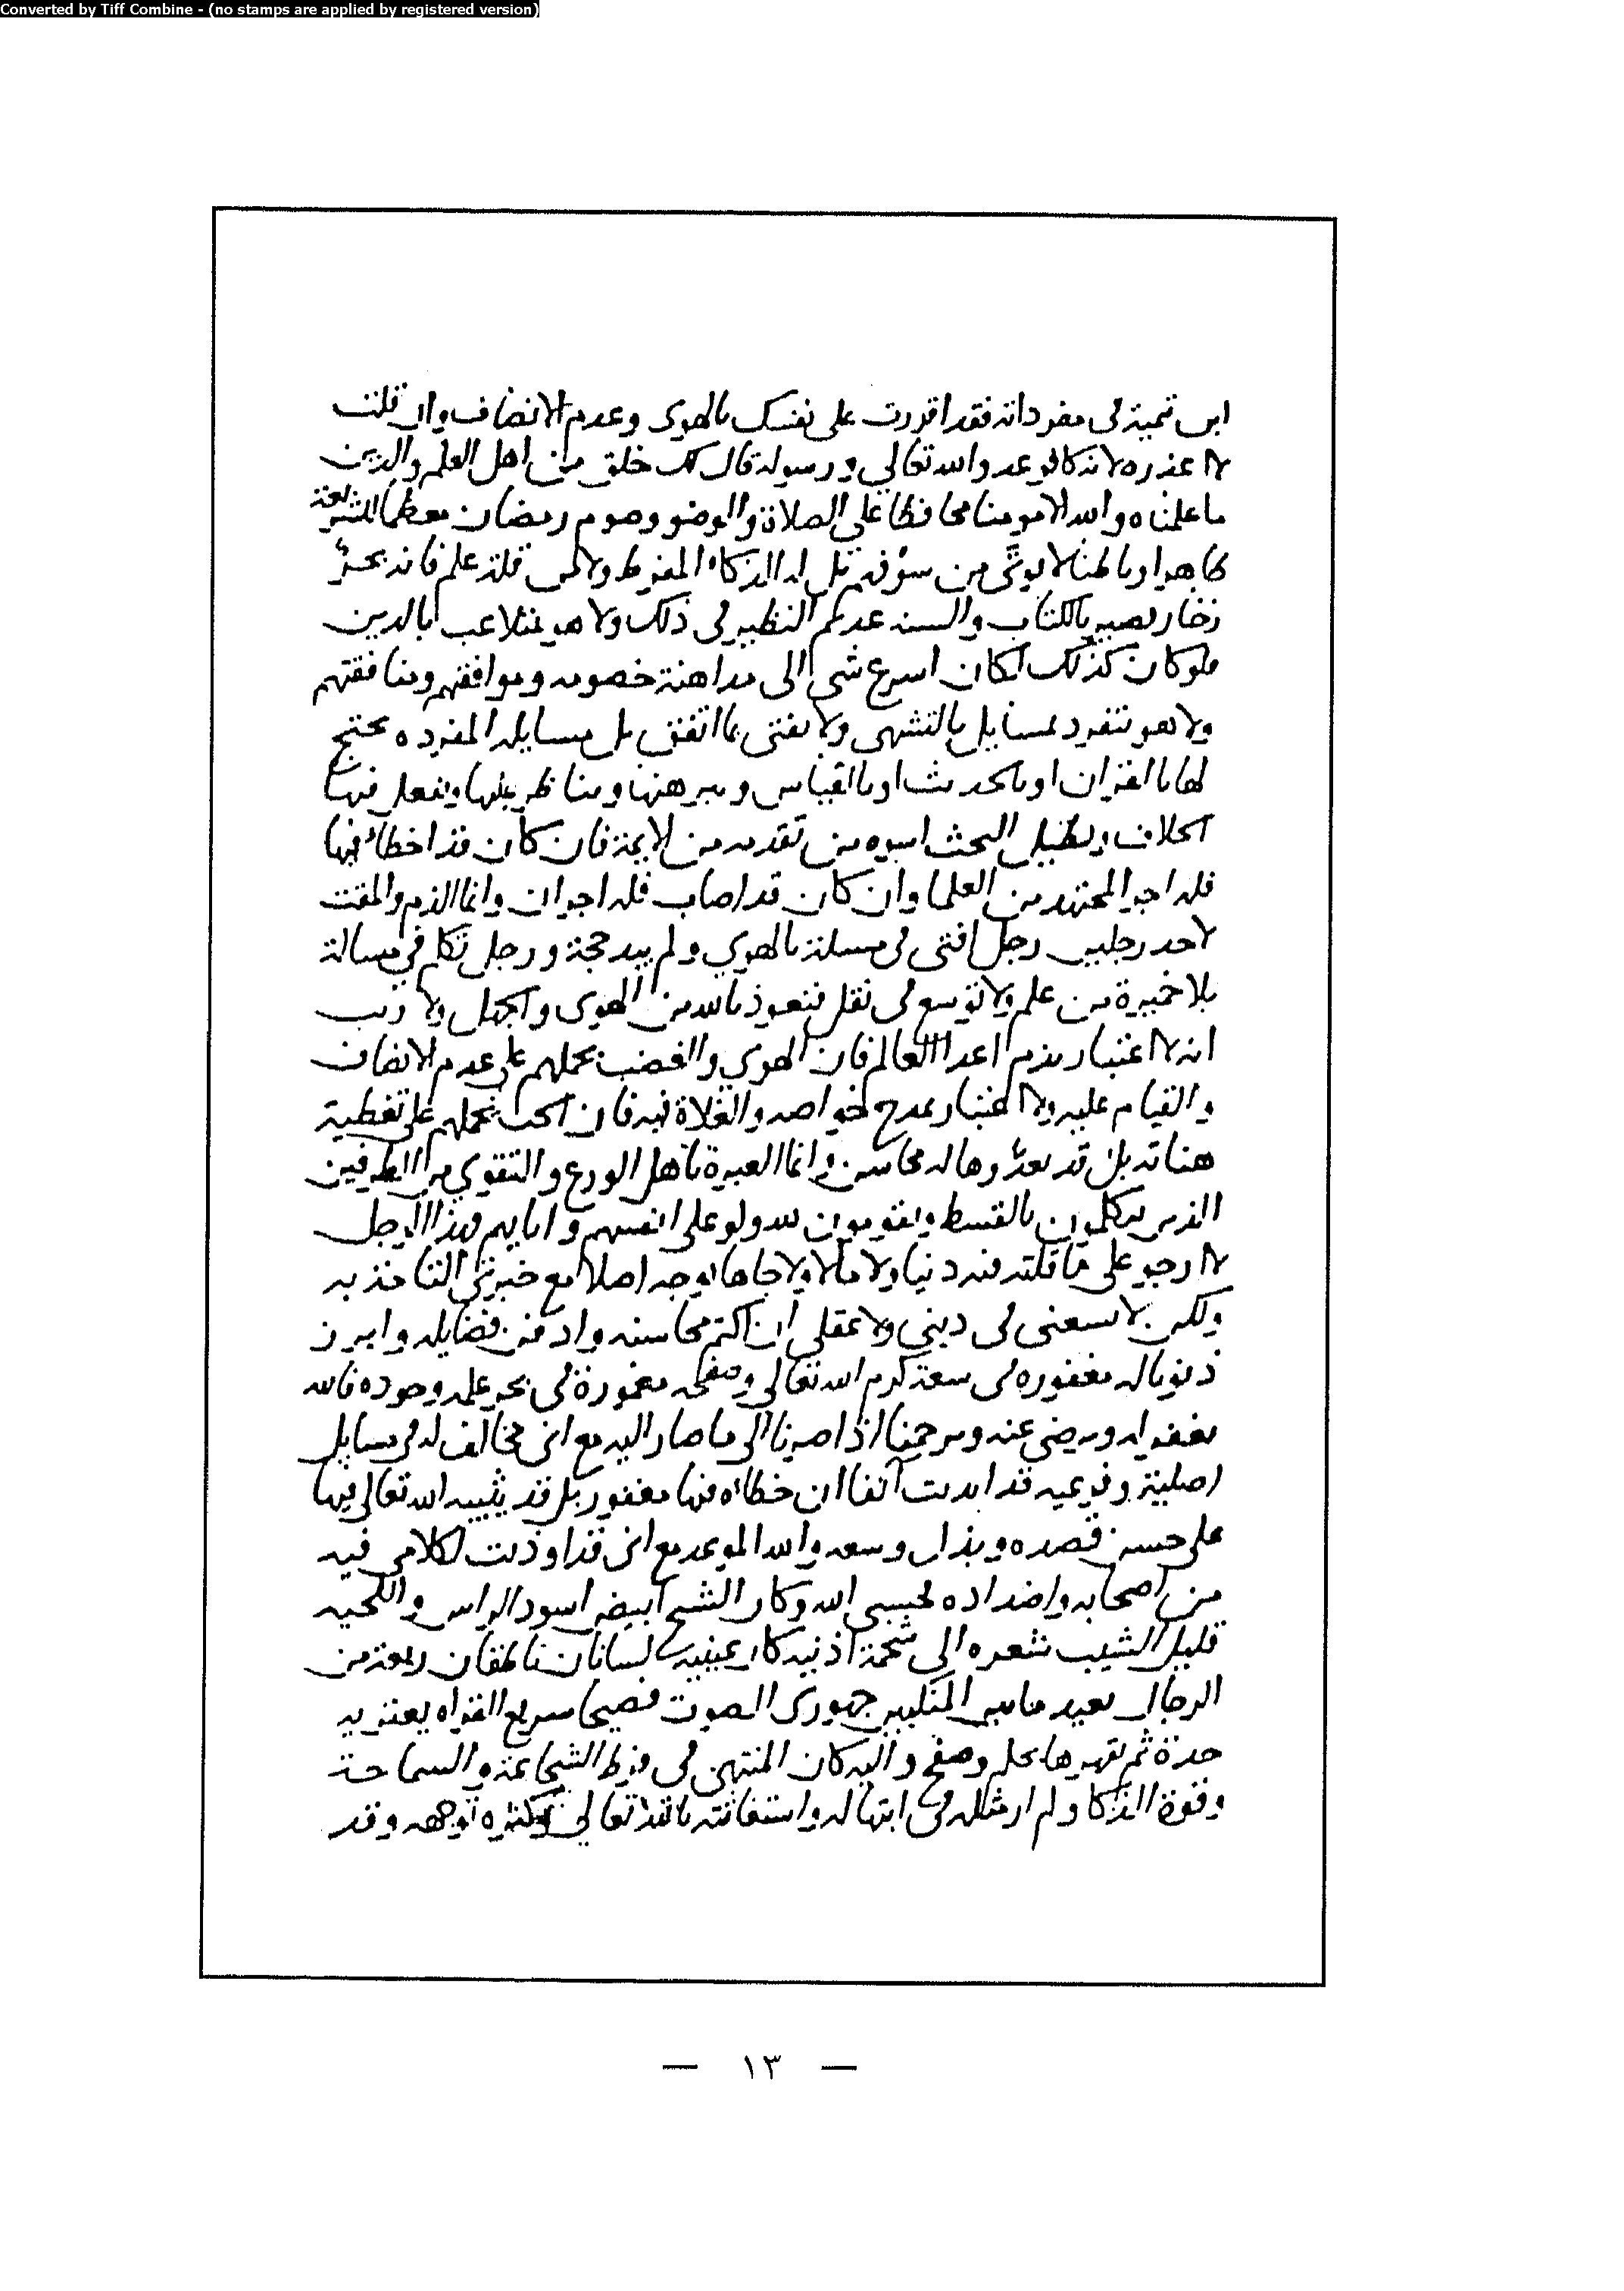 Converted by Tiff Combine - (no stamps are applied by registered version)
ابن تيمية في مفرداته فقد اقررت على نفسك بالهوى وعدم الانصاف وان قلت
لا اعذره لانه كافر عدو الله تعالى ورسوله قال لك خلق من اهل العلم والدين
ما علمناه والله الا مومنا محافظا على الصلاة والوضو وصوم رمضان معظما للشريعة
ظاهرا وباطنا لا يوتى من سوء فهم بل له الذكاء المفرط ولا من قلة علم فانه بحر
زخار بصير بالكتاب والسنه عديم النظير في ذلك ولا هو بمتلاعب بالدين
فلو كان كذلك لكان اسرع شي الى مداهنة خصومه وموافقتهم ومنافقتهم
ولا هو تنفرد بمسايل بالتشهي ولا يفتي بما اتفق بل مسايله المفرده يحتج
لها بالقران او بالحديث او بالقياس ويبرهنها ويناظر عليها وينقل فيها
الخلاف ويطيل البحث اسوه من تقدمه من الايمة فان كان قد اخطاء فيها
فله اجر المجتهد من العلما وان كان قد اصاب فله اجران وانما الذم والمقت
لاحد رجلين رجل افتى في مسلة بالهوي ولم يبد حجة ورجل تكلم في مسالة
بلا خميرة من علم ولا توسع في نقل فنعوذ بالله من الهوى والجهل ولا ريب
انه لا اعتبار بذم اعدا العالم فان الهوى والغضب يحملهم على عدم الانصاف
والقيام عليه ولا اعتبار بمدح خواصه والغلاة فيه فان الحب يحملهم على تغطية
هناته بل قد يعدوها له محاسن وانما العبرة باهل الورع والتقوي من الطرفين
الذين يتكلمون بالقسط ويقومون لله ولو على انفسهم وابايهم فهذا الرجل
لا ارجو على ما قلته فيه دنيا ولا مالا ولا جاها بوجه اصلا مع خبرتي التامة به
ولكن لا يسعني في ديني ولا عقلي ان اكتم محاسنه وادفن فضايله وابرز
ذنوبا له مغفوره في سعة كرم الله تعالى وصفحه مغمورة في بحر علمه وجوده فالله
يغفر له ويرضى عنه ويرحمنا اذا صرنا الى ما صار اليه مع اني مخالف له في مسايل
اصلية وفرعيه قد ابديت آنفا ان خطاه فيها مغفور بل قد يثيبه الله تعالى فيها
على حسن قصده وبذل وسعه والله الموعد مع اني قد اوذيت لكلامي فيه
من اصحابه واضداده فحسبي الله وكان الشيخ ابيض اسود الراس واللحيه
قليل الشيب شعره الى شحمة اذنيه كان عينيه لسانان ناطقان ربعة من
الرجال بعيد ما بين المنكبين جهوري الصوت فصيحا سريع القراه يعتريه
حدة ثم يقهرها بحلم وصفح واليه كان المنتهى في فرط الشجاعة والسماحة
وقوة الذكا ولم ار مثله في ابتهاله واستغاثته بالله تعالى وكثره توجهه وقد
— ١٣ —